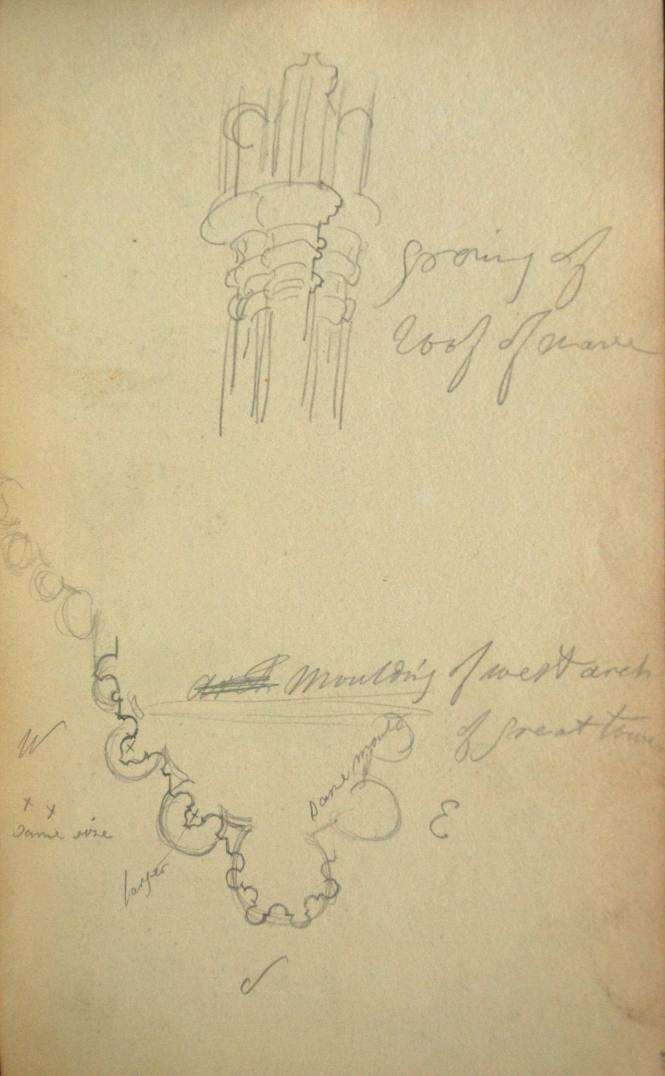 groining of
roof of nave
Moulding of west arch
of great tower
same mould
W
E
x x
same size
larger
S